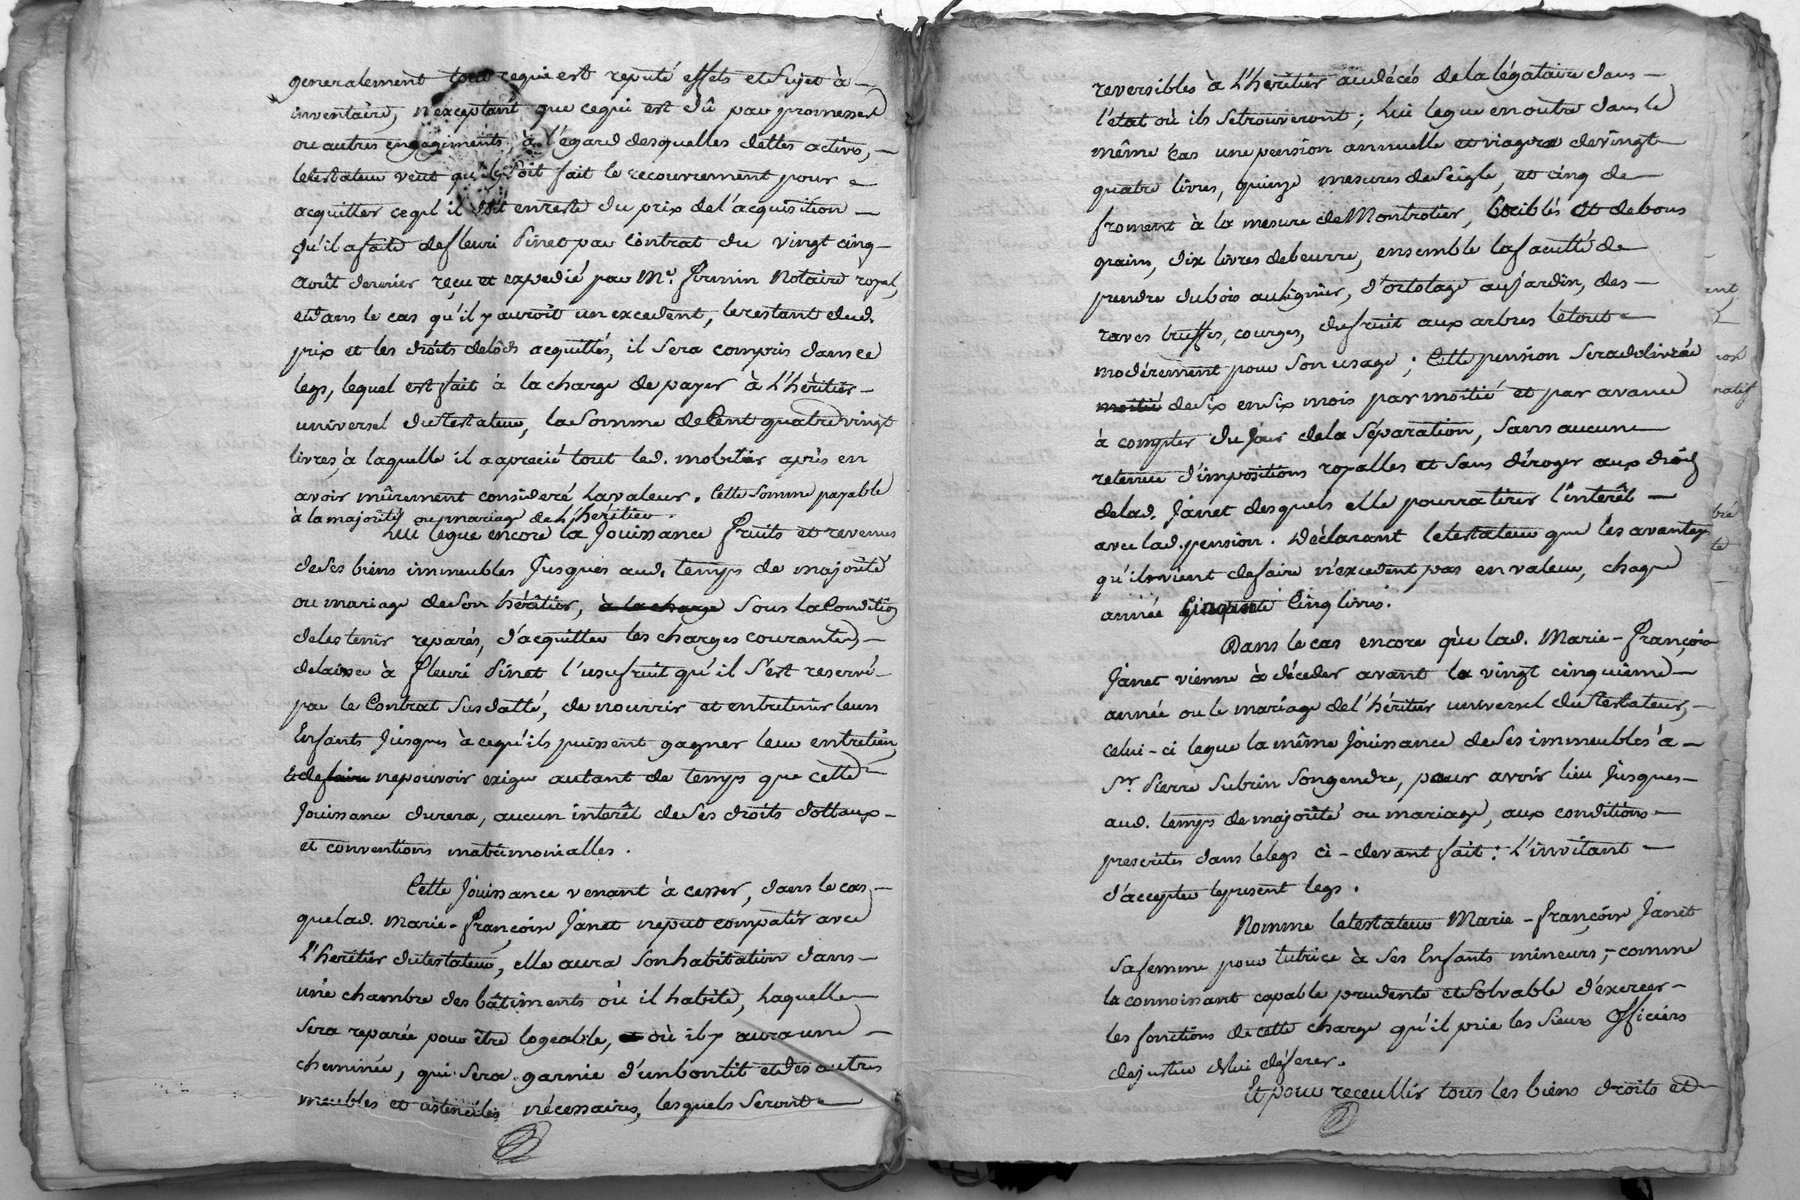 generalement tout ce qui est reputé effets et sujet à
inventaire, n'exceptant que ce qui est dû par promesses
ou autres engagiments, à l'egard desquelles dettes activs,
le testateur veut qu'il soit fait le recouvrement pour
acquitter ce qu'il doit en reste du prix de l'acquisition
qu'il a faite de fleuri Pinet par Contrat du vingt cinq
août dernier reçu et expedié par Me. Formin Notaire royal,
et dans le cas qu'il y auroit un excedent, le restant dud.
prix et les droits de lods acquittés, il sera compris dans ce
legs, lequel est fait à la charge de payer à L'héritier
universel du testateur, la somme de Cent quatre vingt
livres, à laquelle il a aprecié tout led. mobilier après en
avoir mûrement consideré la valeur. Cette somme payable
à la majorité ou mariage de L'heritier.
Lui legue encore la Jouissance fruits et revenus
de ses biens immeubles Jusques aud. temps de majorité
ou mariage de son héritier, à la charge sous la Condition
de les tenir reparés, d'acquitter les charges courantes,
delaisser à fleuri Pinet l'usufruit qu'il s'est reservé
par le Contrat susdatté, de nourrir et entretenir leurs
Enfants Jusques à ce qu'ils puissent gagner leur entretien,
et de faire ne pouvoir exiger autant de temps que cette
Jouissance durera, aucun interêt de ses droits dottaux
et conventions matrimonialles.
Cette Jouissance venant à cesser, dans le cas
que lad. Marie-françoise Janet ne put compatir avec
L'heritier du testateur, elle aura son habitation dans
une chambre des bâtiments où il habite, Laquelle
sera reparée pour être logeable, et où il y aura une
cheminée, qui sera garnie d'un bon lit et des autres
meubles et ustenciles nécessaires, lesquels seront
reversibles à L'heritier au décés de la légataire dans
l'état où ils se trouveront; Lui legue en outre dans le
même cas une pension annuelle et viagere de vingt
quatre livres, quinze mesures de seigle, et cinq de
froment à la mesure de Montrotier, bociblés et de bons
grains, dix livres de beurre, ensemble la faculté de
prendre du bois au lignier, d'ortolage au jardin, des
raves truffes, courges, du fruit aux arbres le tout
modérement pour son usage; Cette pension sera delivrée
moitié de six en six mois par moitié et par avance
à compter du Jour de la séparation, sans aucune
retenue d'impositions royalles et sans déroger aux droits
de lad. Janet desquels elle pourra tirer l'interêt
avec lad. pension. Déclarant le testateur que les avantages
qu'il vient de faire n'excedent pas en valeur, chaque
année Cinquante Cinq livres.
Dans le cas encore que lad. Marie-françoise
Janet vienne à décéder avant la vingt cinquieme
année ou le mariage de l'héritier universel du testateur,
celui-ci legue la même Jouissance de ses immeubles à
Sr. Pierre Subrin son gendre, pour avoir lieu Jusques
aud. temps de majorité ou mariage, aux conditions
prescrites dans le legs ci-devant fait: L'invitant
d'accepter le present legs.
Nomme le testateur Marie-françoise Janet
sa femme pour tutrice à ses Enfants mineurs, comme
la connoissant capable prudente et solvable d'éxercer
les fonctions de cette charge qu'il prie les sieurs officiers
de justice de lui déferer.
Et pour receuillir tous les biens droits et